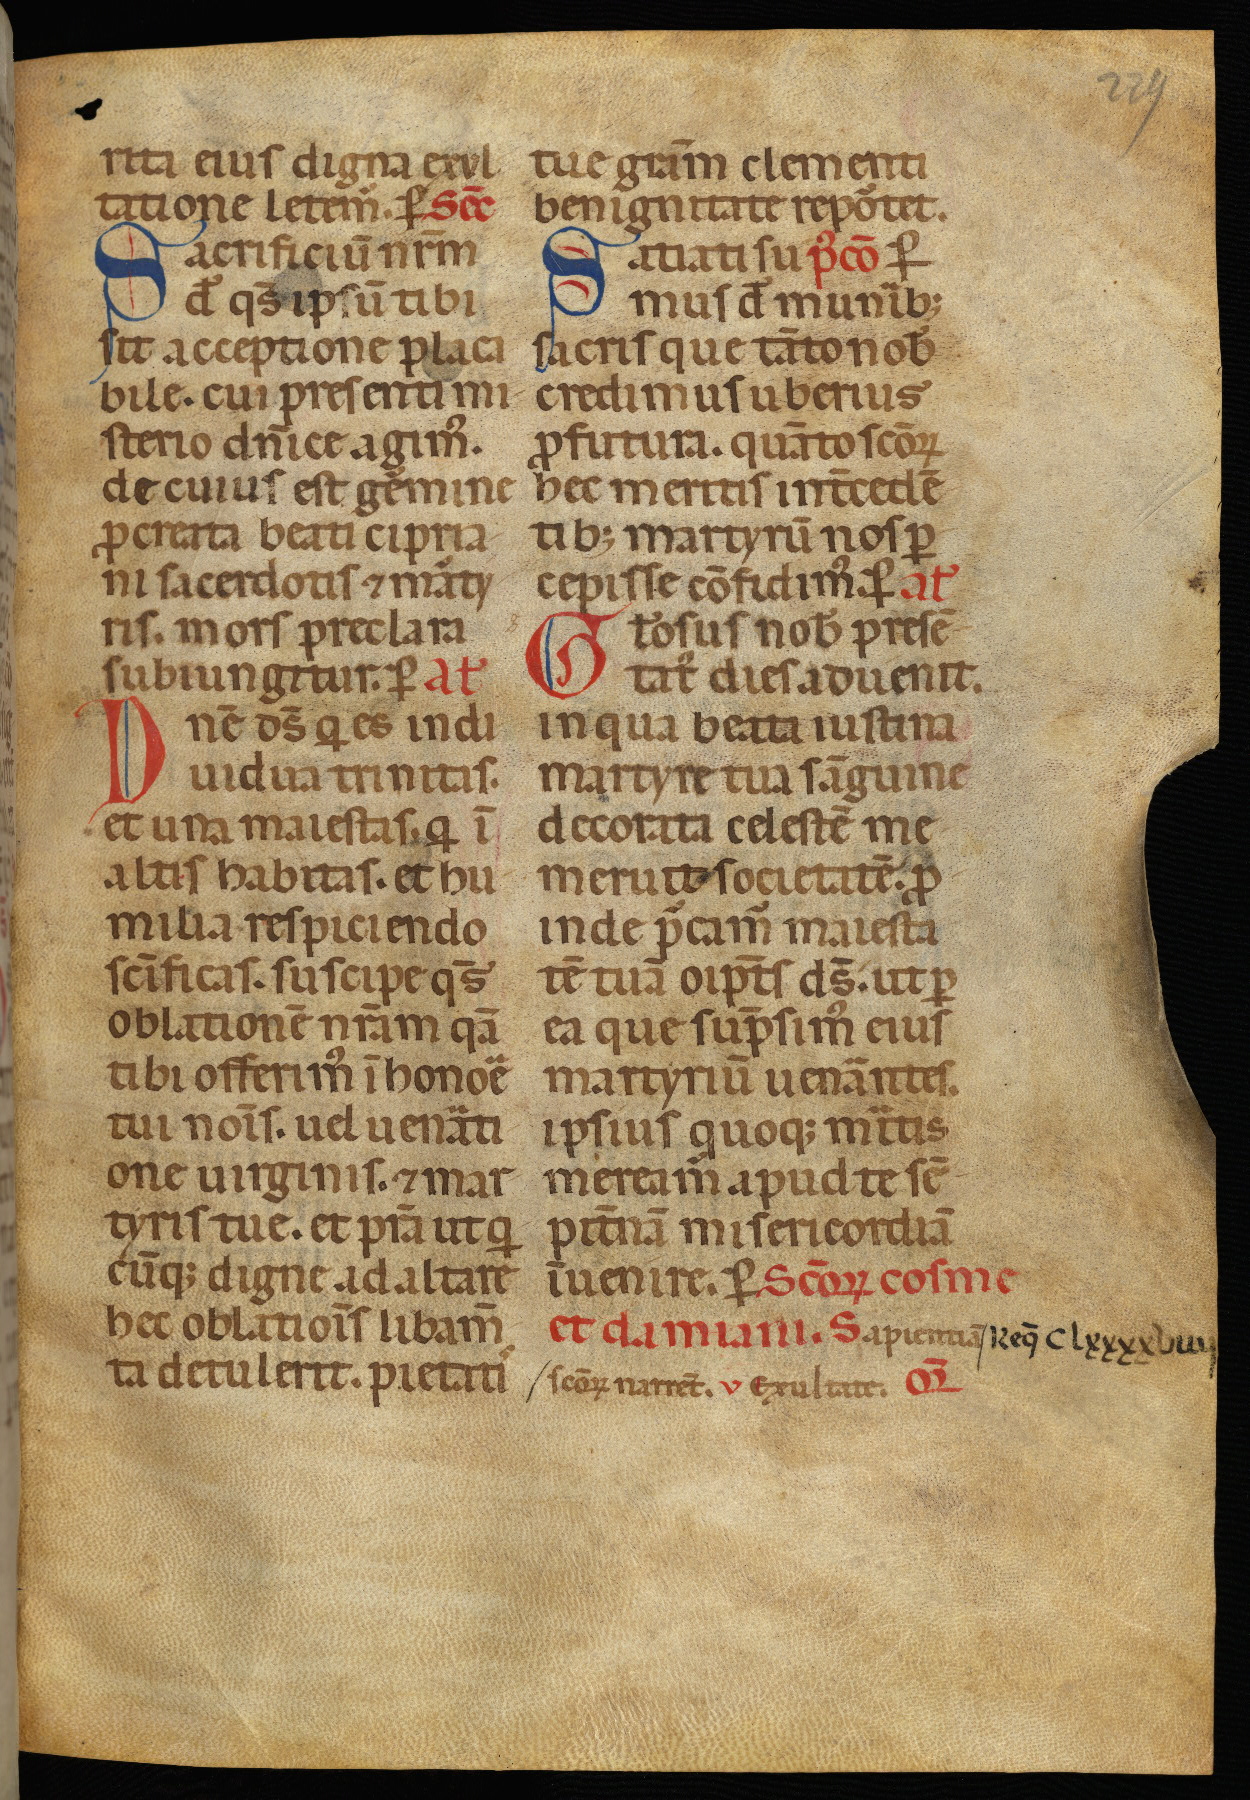 229
riti eius digna exvl
tatione letem᷑. ꝑ Sec̄c
Sacrificiū nr̄m
d̄s qs̄ ipsū tibi
sit acceptione placa
bile. cui presenti mi
sterio dn̄ice agim᷒.
de cuius est gemine
ꝓcreata beati cipria
ni sacerdotis ⁊ marty
ris. mors preclara
subiungitur. ꝑ at
Dnē ds̄ qi es indi
uidua trinitas.
et una maiestas. qi ī
altis habitas. et hu
milia respiciendo
scīficas. suscipe qs̄
oblationē nr̄am qā
tibi offerim᷒ ī honoꝛē
tui noīs. uel uenati
one uirginis. ⁊ mar
tyris tue. et prā ut qi
cūqꝫ digne ad altare
hec oblatioīs libam̄
ta detulerit. pietati᷒
tue grām clementi
benignitate repōtet.
Satiati su p᷒cō ꝑ
mus d̄ munibꝫ
sacris que tāto nob̄
credimus uberius
ꝓfutura. quāto scōꝝ
hec meritis int̄cedē
tibꝫ martyrū nos ꝑ
cepisse cōfidim᷒. ꝑ at
Gtosus nob̄ presē
tat᷑ dies aduenit.
in qua beata iustina
martyre tua sāguine
decorata celestē me
meruit societatē. ꝓ
inde p̄cam᷑ maiesta
tē tuā oip̄ts ds̄. ut ꝑ
ea que sup̄sim᷒ eius
martyriū uenāntes.
ipsius quoqꝫ mītis
meream᷑ apud te sē
pit̄nā misericordiā
īuenire. ꝑ Scōꝝ cosme
et damiani. Sapientiā / Req̄ Clxxxxbiiij
/ scōꝝ narrēt. v Exultate. Or̄